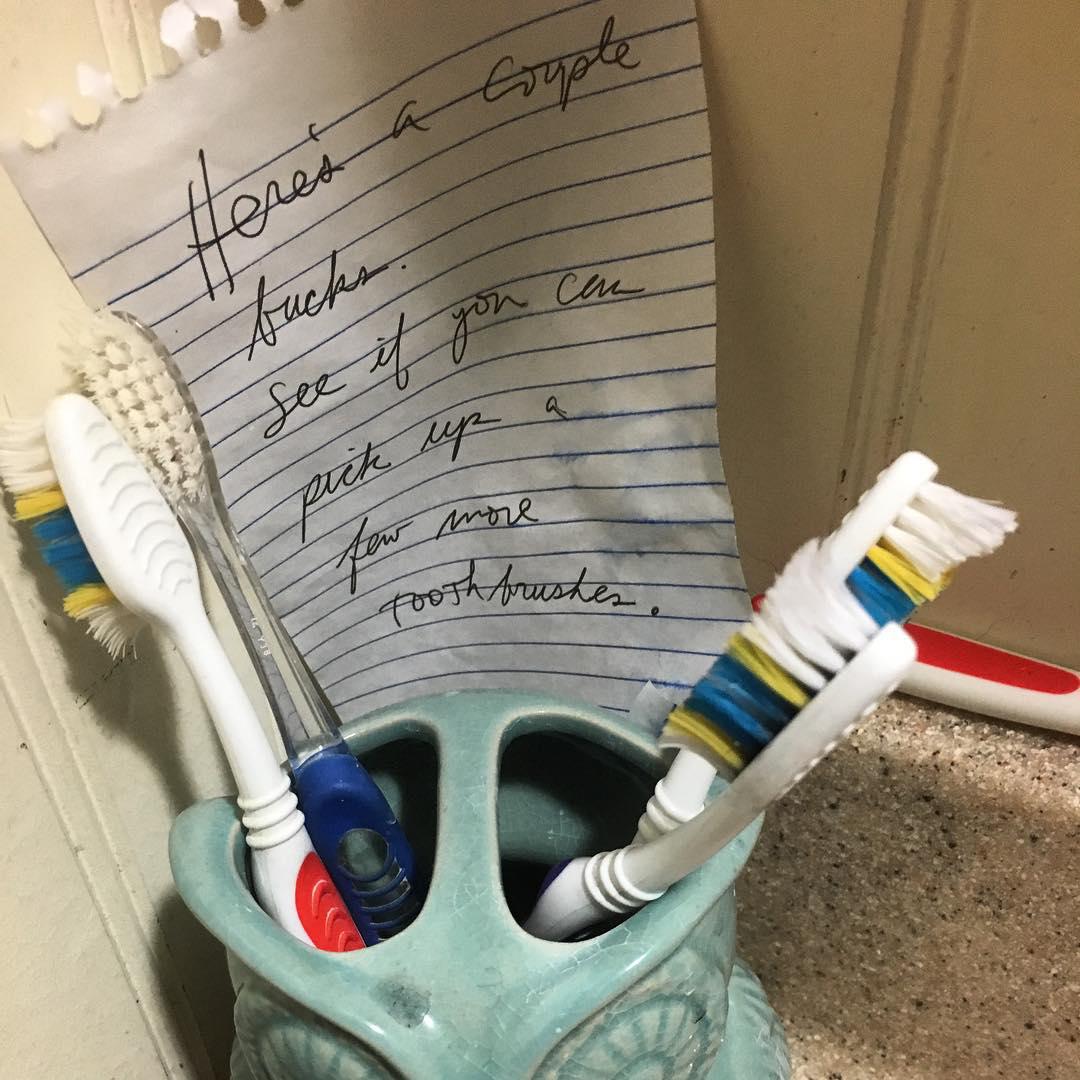 Here's a couple
bucks.
See if you can
pick up a
few more
toothbrushes.